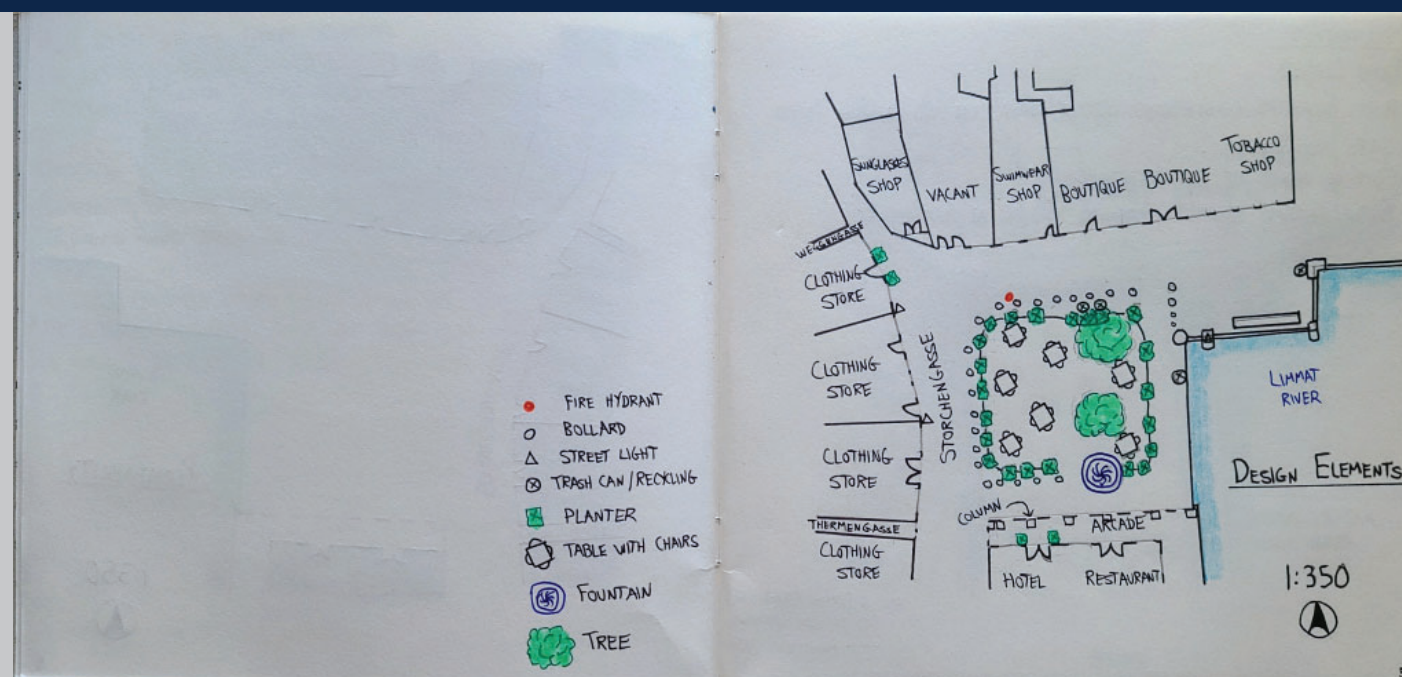 FIRE HYDRANT
BOLLARD
STREET LIGHT
TRASH CAN / RECYCLING
PLANTER
TABLE WITH CHAIRS
FOUNTAIN
TREE
SUNGLASSES
SHOP
VACANT
SWIMWEAR
SHOP
BOUTIQUE
BOUTIQUE
TOBACCO
SHOP
WEGGENGASSE
CLOTHING
STORE
CLOTHING
STORE
CLOTHING
STORE
THERMENGASSE
CLOTHING
STORE
STORCHENGASSE
COLUMN
ARCADE
HOTEL
RESTAURANT
LIMMAT
RIVER
DESIGN ELEMENTS
1:350